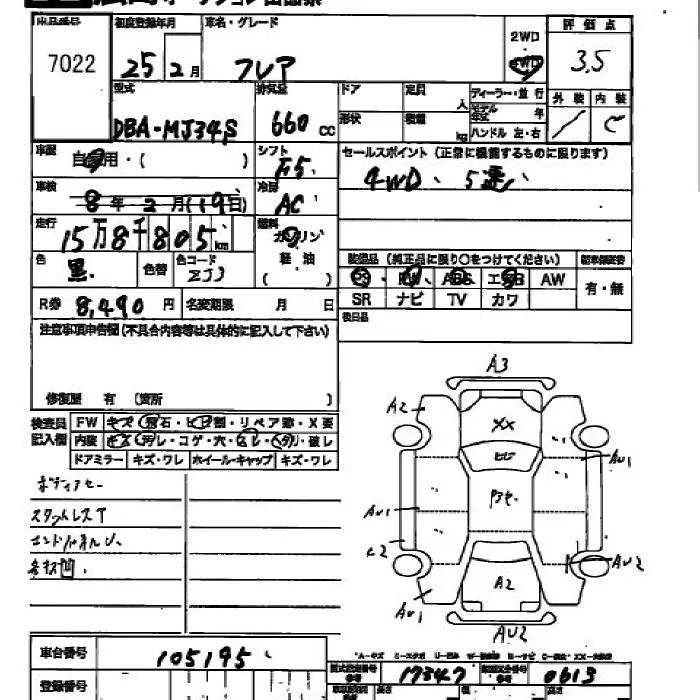 出品番号 初度登録年月 車名・グレード 評価点
7022 25年2月 フレア 2WD 4WD 3.5
型式 排気量 ドア 定員 人 ディーラー・並行 外装 内装
DBA-MJ34S 660 CC 形状 積載 kg モデル年式 年 ハンドル 左・右 C
車歴 自家用・( ) シフト F5 セールスポイント (正常に機能するものに限ります)
車検 8年2月(19日) 冷房 AC 4WD、5速
走行 15万8千805km 燃料 ガソリン 軽油 ( )
色 黒 色替 色コード ZJ3 装備品 (純正品に限り○をつけてください) 新車保証書
PS PW ABS エアB AW 有・無
R券 8,490円 名変期限 月 日 SR ナビ TV カワ
注意事項申告欄 (不具合内容等は具体的に記入して下さい) 後日品
修復歴 有 (箇所 )
検査員記入欄 FW キズ・飛石・ヒビ割・リペア跡・X要
内装 キズ・汚レ・コゲ・穴・スレ・ヘタリ・破レ
ドアミラー キズ・ワレ ホイール・キャップ キズ・ワレ
A3
A2
XX
ヒビ
AU1
AU1
C2
AU2
A2
AU1
AU2
スタットレスT
各キズ凹
車台番号 105195
A-キズ
型式指定番号 17347 類別区分番号 0613
登録番号 長さ 高さ